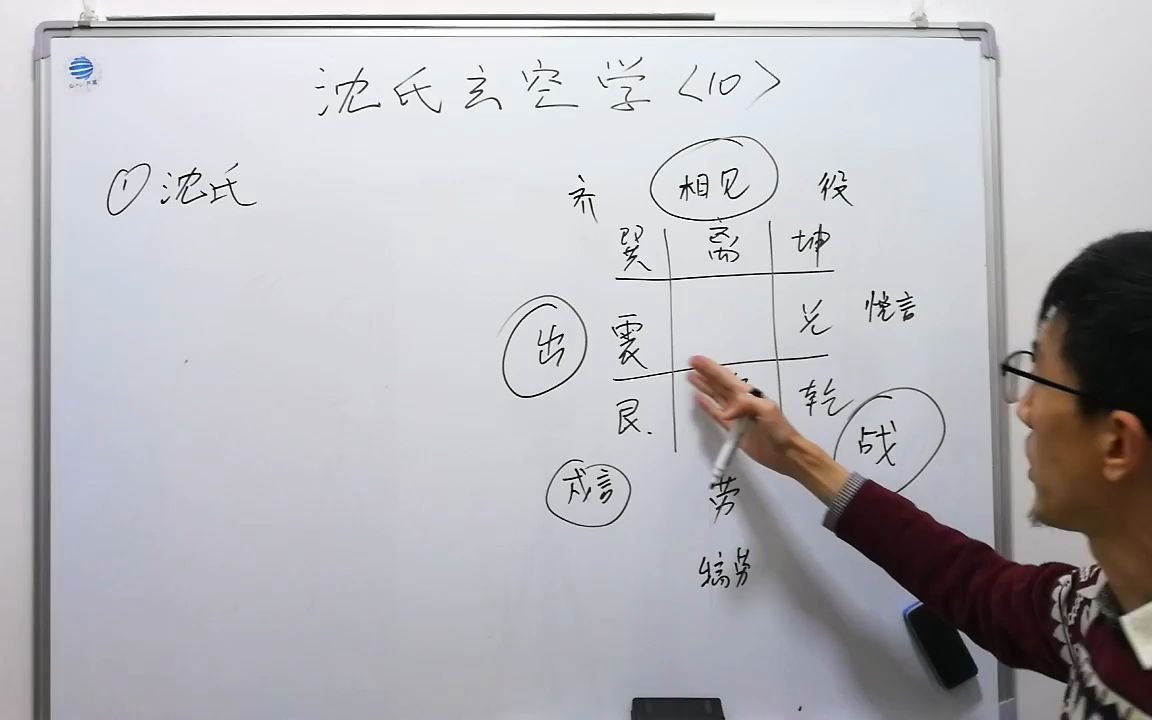 沈氏玄空学<10>
① 沈氏
齐 相见 役
巽 离 坤
出 震 兑 悦言
艮 乾 战
成言 劳
犒劳